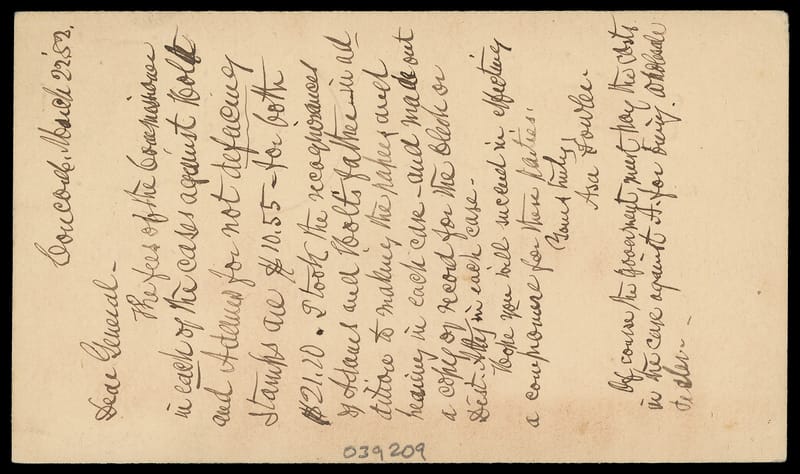 Concord, March 22 52.
Dear General –
The fees of the Commissioner
in each of the cases against Holt
and Adams for not defacing
stamps are $10.55 – for both
$21.20. I took the recognizances
of Adams and Holt's father – in ad
dition to making the papers and
hearing in each case – and made out
a copy of record for the Clerk or
Dist. Atty in each case –
Hope you will succeed in effecting
a compromise for these parties.
Yours truly,
Asa Fowler
Of course the Government must pay the costs
in the case against A. for being wholesale
dealer –
039209